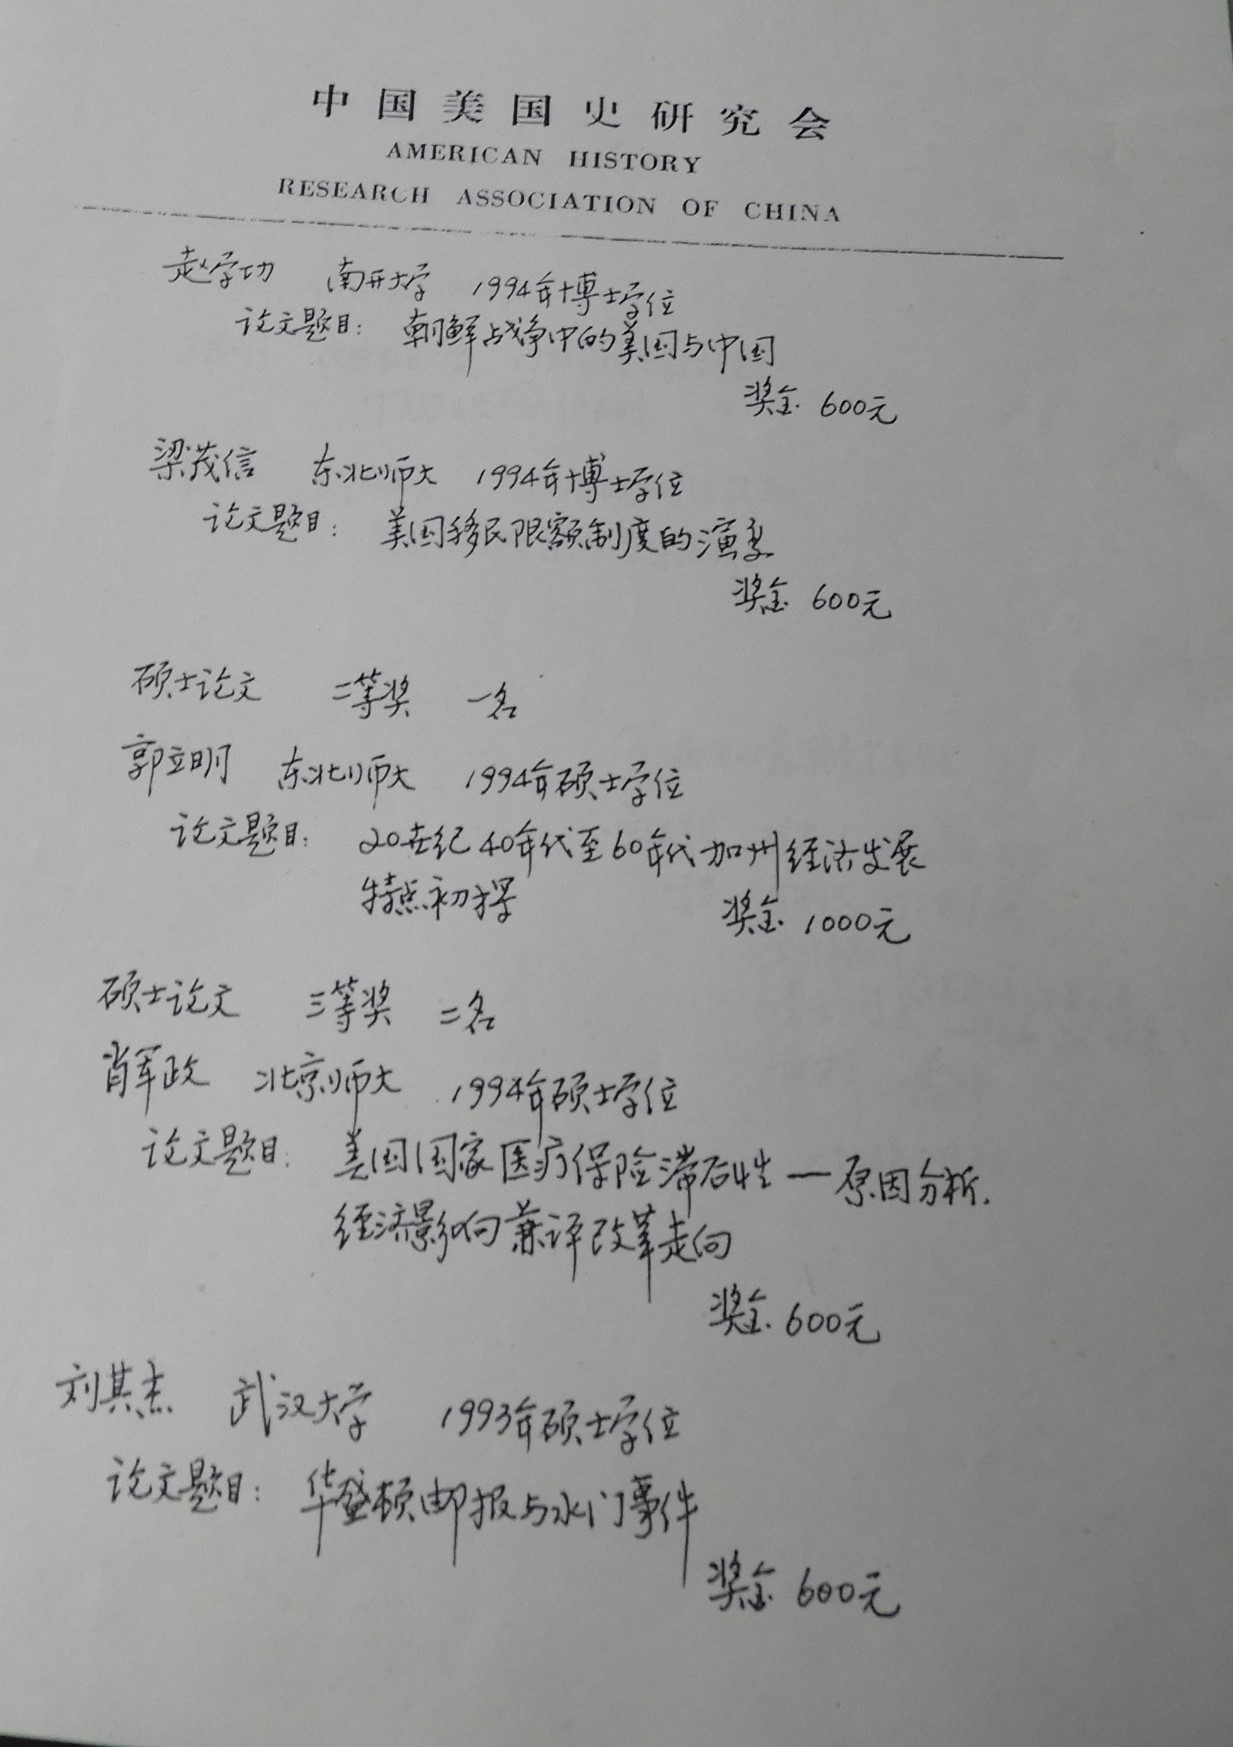 中国美国史研究会
AMERICAN HISTORY
RESEARCH ASSOCIATION OF CHINA
赵学功 南开大学 1994年博士学位
论文题目: 朝鲜战争中的美国与中国
奖金 600元
梁茂信 东北师大 1994年博士学位
论文题目: 美国移民限额制度的演变
奖金 600元
硕士论文 二等奖 一名
郭立明 东北师大 1994年硕士学位
论文题目: 20世纪40年代至60年代加州经济发展
特点初探 奖金 1000元
硕士论文 三等奖 二名
肖军政 北京师大 1994年硕士学位
论文题目: 美国国家医疗保险滞后性—原因分析.
经济影响兼评改革走向
奖金 600元
刘其杰 武汉大学 1993年硕士学位
论文题目: 华盛顿邮报与水门事件
奖金 600元